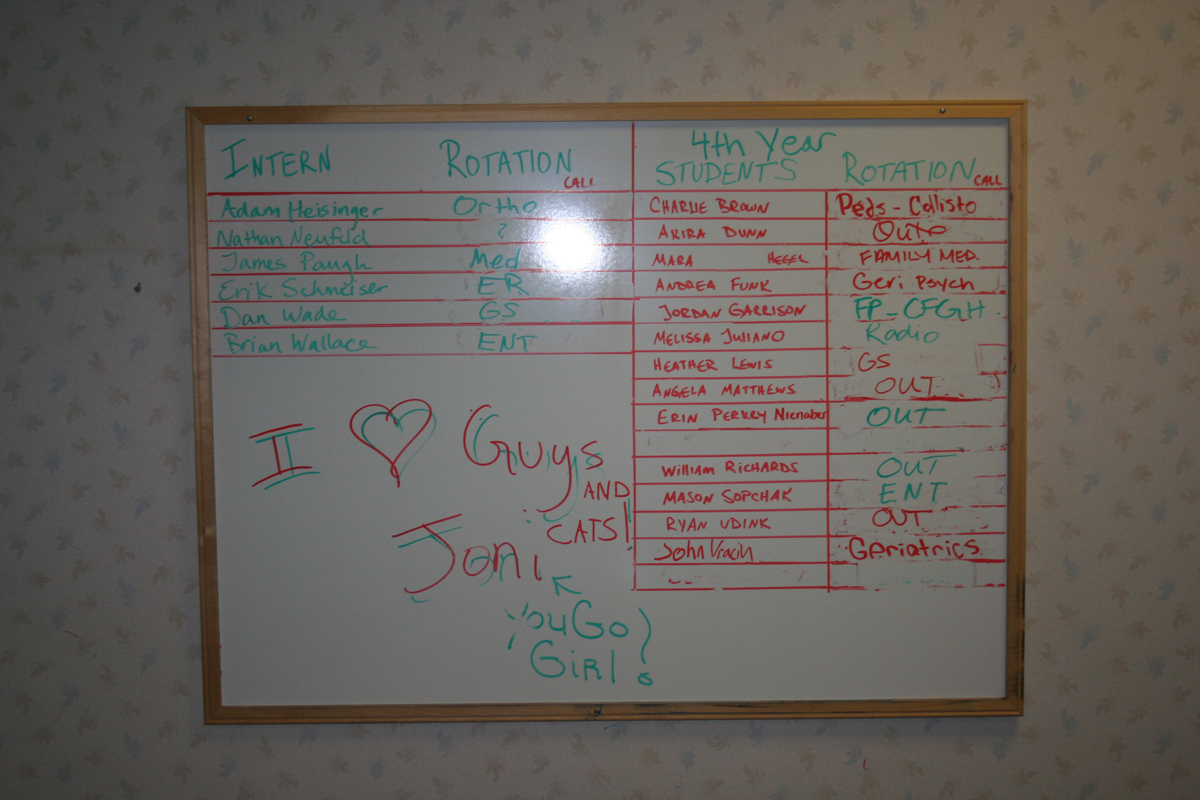 INTERN ROTATION CALL
Adam Heisinger Ortho
Nathan Neufeld ?
James Paugh Med
Erik Schmeiser ER
Dan Wade GS
Brian Wallace ENT
4th Year
STUDENTS ROTATION CALL
CHARLIE BROWN Peds - Collisto
AKIRA DUNN Out
MARA HEGEL FAMILY MED.
ANDREA FUNK Geri Psych
JORDAN GARRISON FP - CFGH
MELISSA JULIANO Radio
HEATHER LEWIS GS
ANGELA MATTHEWS OUT
ERIN PERKEY Nienaber OUT
WILLIAM RICHARDS OUT
MASON SOPCHAK ENT
RYAN UDINK OUT
John Vracin Geriatrics
I Guys
AND
CATS!
Joni
You Go
GIRL!